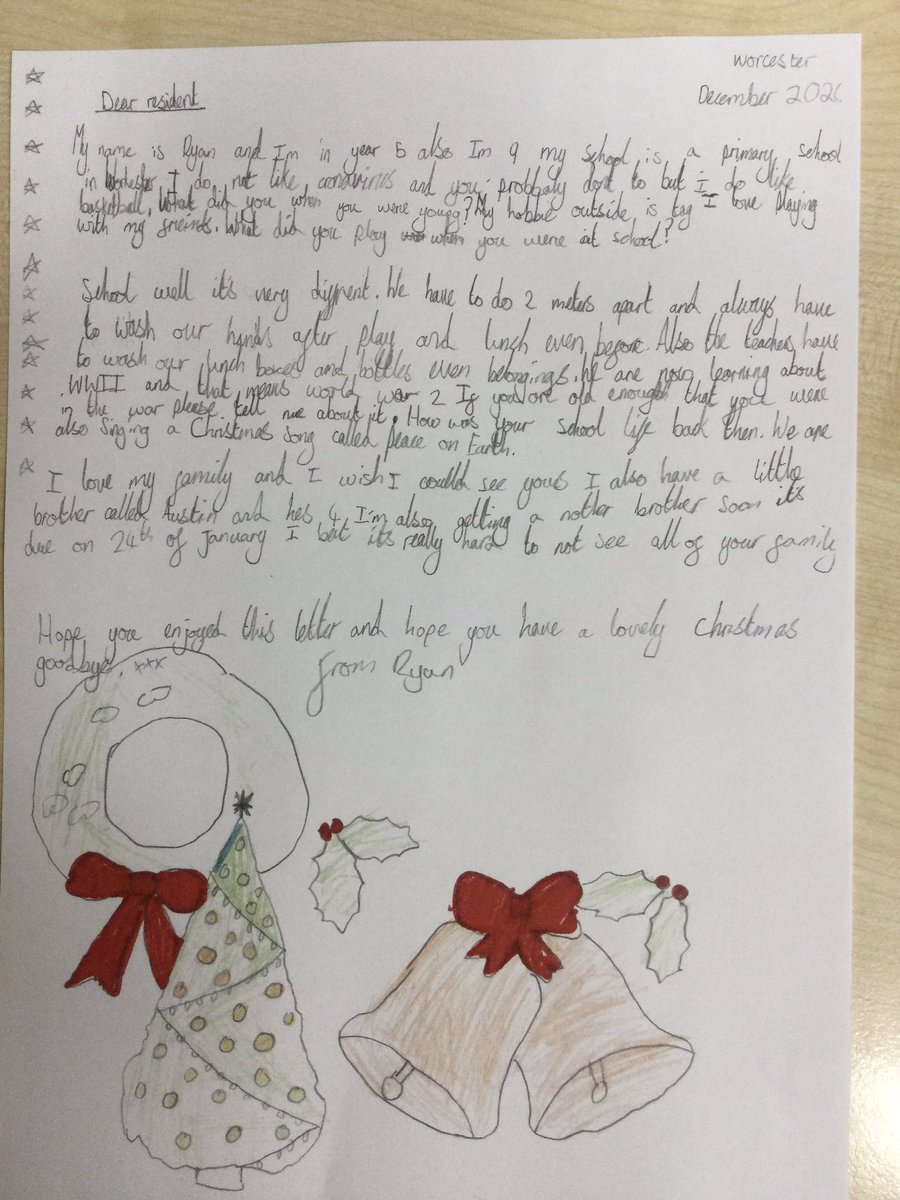 worcester
December 202
Dear resident
My name is Ryan and Im in year 5 also Im 9 my school is a primary school
in Worcester I do not like coronvirus and you probbaly dont to but i do like
basketball. What did you when you were young? My hobbie outside is tag I love playing
with my freinds. What did you play when you were at school?
School well it's very diffrent. We have to do 2 meters apart and always have
to wash our hands after play and lunch even before. Also the teachers have
to wash our lunch boxes and bottles even belongings. We are now learning about
WWII and that means world war 2 If you are old enough that you were
in the war please tell me about it. How was your school life back then. We are
also singing a Christmas song called Peace on Earth.
I love my family and I wish I could see yours I also have a little
brother called Austin and hes 4. I'm also getting a nother brother soon it's
due on 24th of January I bet it's really hard to not see all of your family
Hope you enjoyed this letter and hope you have a lovely Christmas
goodbye. xxx
from Ryan